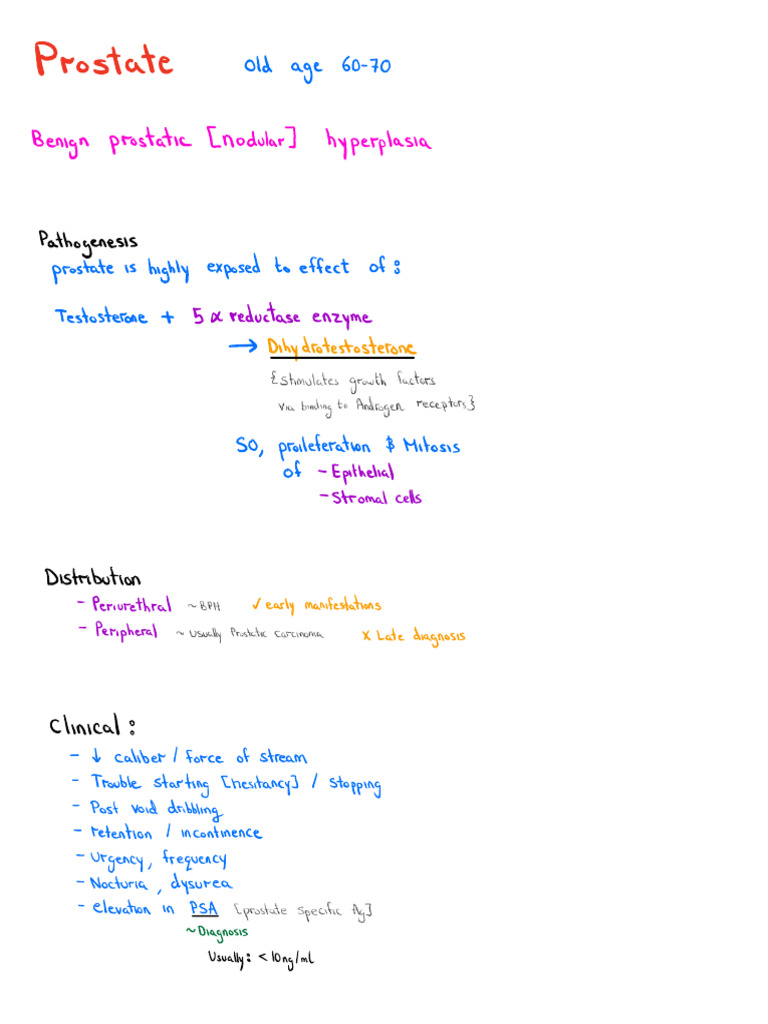 Prostate
Old age 60-70
Benign prostatic [nodular] hyperplasia
Pathogenesis
prostate is highly exposed to effect of :
Testosterone + 5 α reductase enzyme
→ Dihydrotestosterone
{stimulates growth factors
via binding to Androgen receptors}
SO, proileferation & Mitosis
of - Epithelial
- Stromal cells
Distribution
- Periurethral ~ BPH ✓ early manifestations
- Peripheral ~ Usually Prostatic carcinoma x Late diagnosis
Clinical :
- ↓ caliber / force of stream
- Trouble starting [hesitancy] / stopping
- Post void dribbling
- retention / incontinence
- Urgency, frequency
- Nocturia, dysurea
- elevation in PSA [prostate specific Ag]
~ Diagnosis
Usually: < 10ng/ml